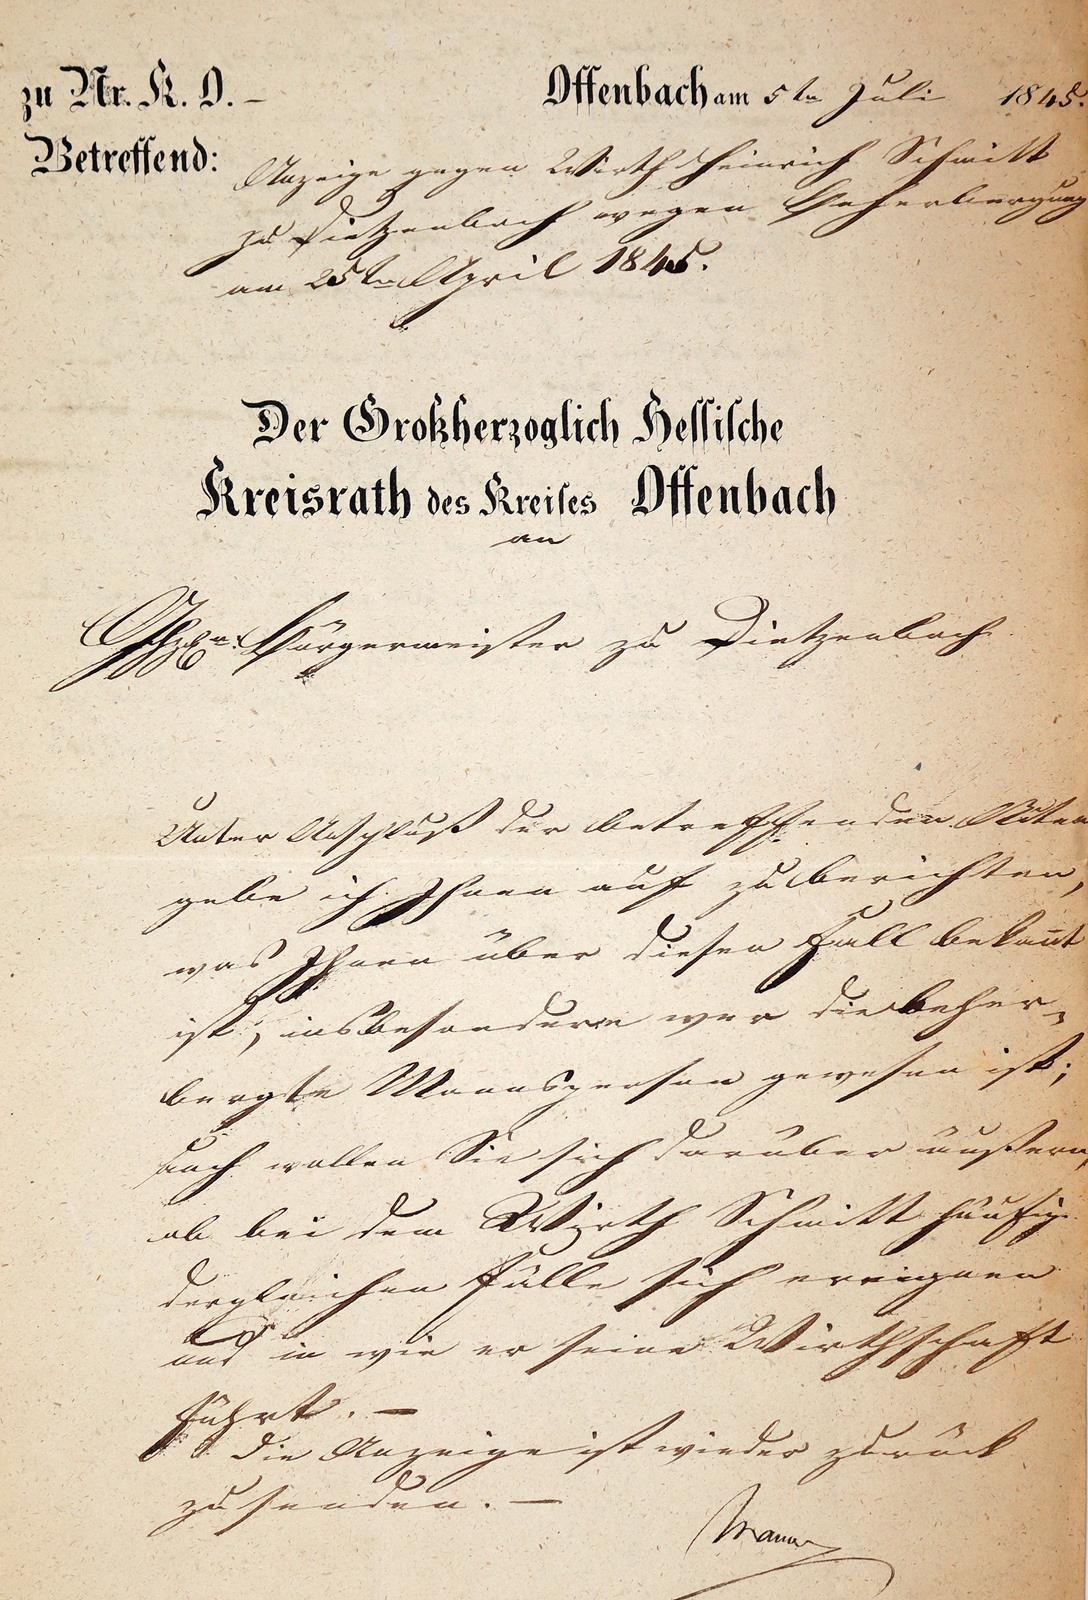 zu Nr. K. D. –
Offenbach am 5ten Juli 1845.
Betreffend: Anzeige gegen Wirth Heinrich Schmitt
zu Dietzenbach wegen Beherbergung
am 25ten April 1845.
Der Großherzoglich Hessische
Kreisrath des Kreises Offenbach
an
Bürgermeister zu Dietzenbach
Unter Anschluß der betreffenden Akten
gebe ich Ihnen auf zu berichten,
was Ihnen über diesen Fall bekannt
ist, insbesondere wer die beher-
bergte Mannsperson gewesen ist;
auch wollen Sie sich darüber äußern,
ob bei dem Wirth Schmitt häufig
dergleichen Fälle sich ereignen
und in wie er seine Wirthschaft
führt. –
Die Anzeige ist wieder zurück
zu senden. –